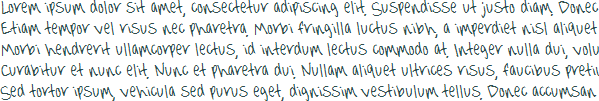 Lorem ipsum dolor sit amet, consectetur adipiscing elit. Suspendisse ut justo diam. Donec
Etiam tempor vel risus nec pharetra. Morbi fringilla luctus nibh, a imperdiet nisl aliquet
Morbi hendrerit ullamcorper lectus, id interdum lectus commodo at. Integer nulla dui, volu
Curabitur et nunc elit. Nunc et pharetra dui. Nullam aliquet ultrices risus, faucibus preti
Sed tortor ipsum, vehicula sed purus eget, dignissim vestibulum tellus. Donec accumsan